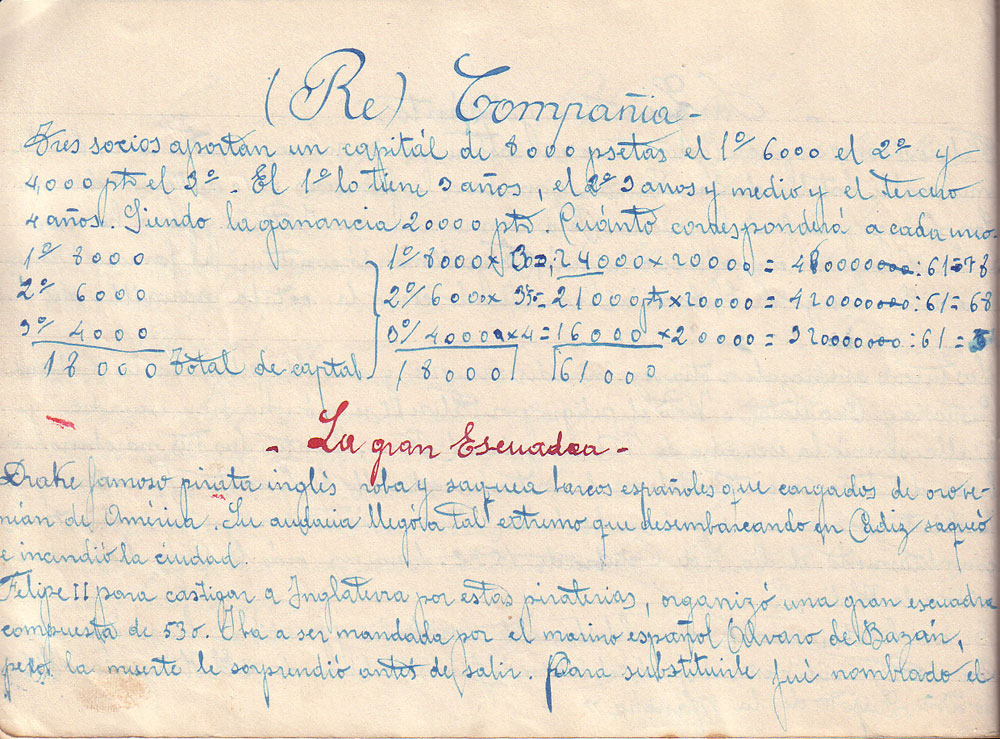 (Re) Compañia-
Tres socios aportan un capitál de 8000 psetas el 1º 6000 el 2º y
4000 pts el 3º. El 1º lo tiene 3 años, el 2º 3 anos y medio y el tercero
4 años. Siendo la ganancia 20000 pts. Cuánto corresponderá a cada uno.
1º 8000
1º 8000 x 3 = 24000 x 20000 = 480000000 : 61 = 78
2º 6000
2º 6000 x 3'50 = 21000 pts x 20000 = 420000000 : 61 = 68
3º 4000
3º 4000 x 4 = 16000 x 20000 = 320000000 : 61 =
18000 Total de captal
18000 61000
- La gran Escuadra -
Drake famoso pirata inglés roba y saquea barcos españoles que cargados de oro ve-
nián de América. Su audacia llegó a tal extremo que desembarcando en Cádiz saqueó
e incendió la ciudad.
Felipe II para castigar a Inglaterra por estas piraterias, organizó una gran escuadra
compuesta de 530. Iba a ser mandada por el marino español Alvaro de Bazán,
pero la muerte le sorprendió antes de salir. Para substituirle fué nombrado el